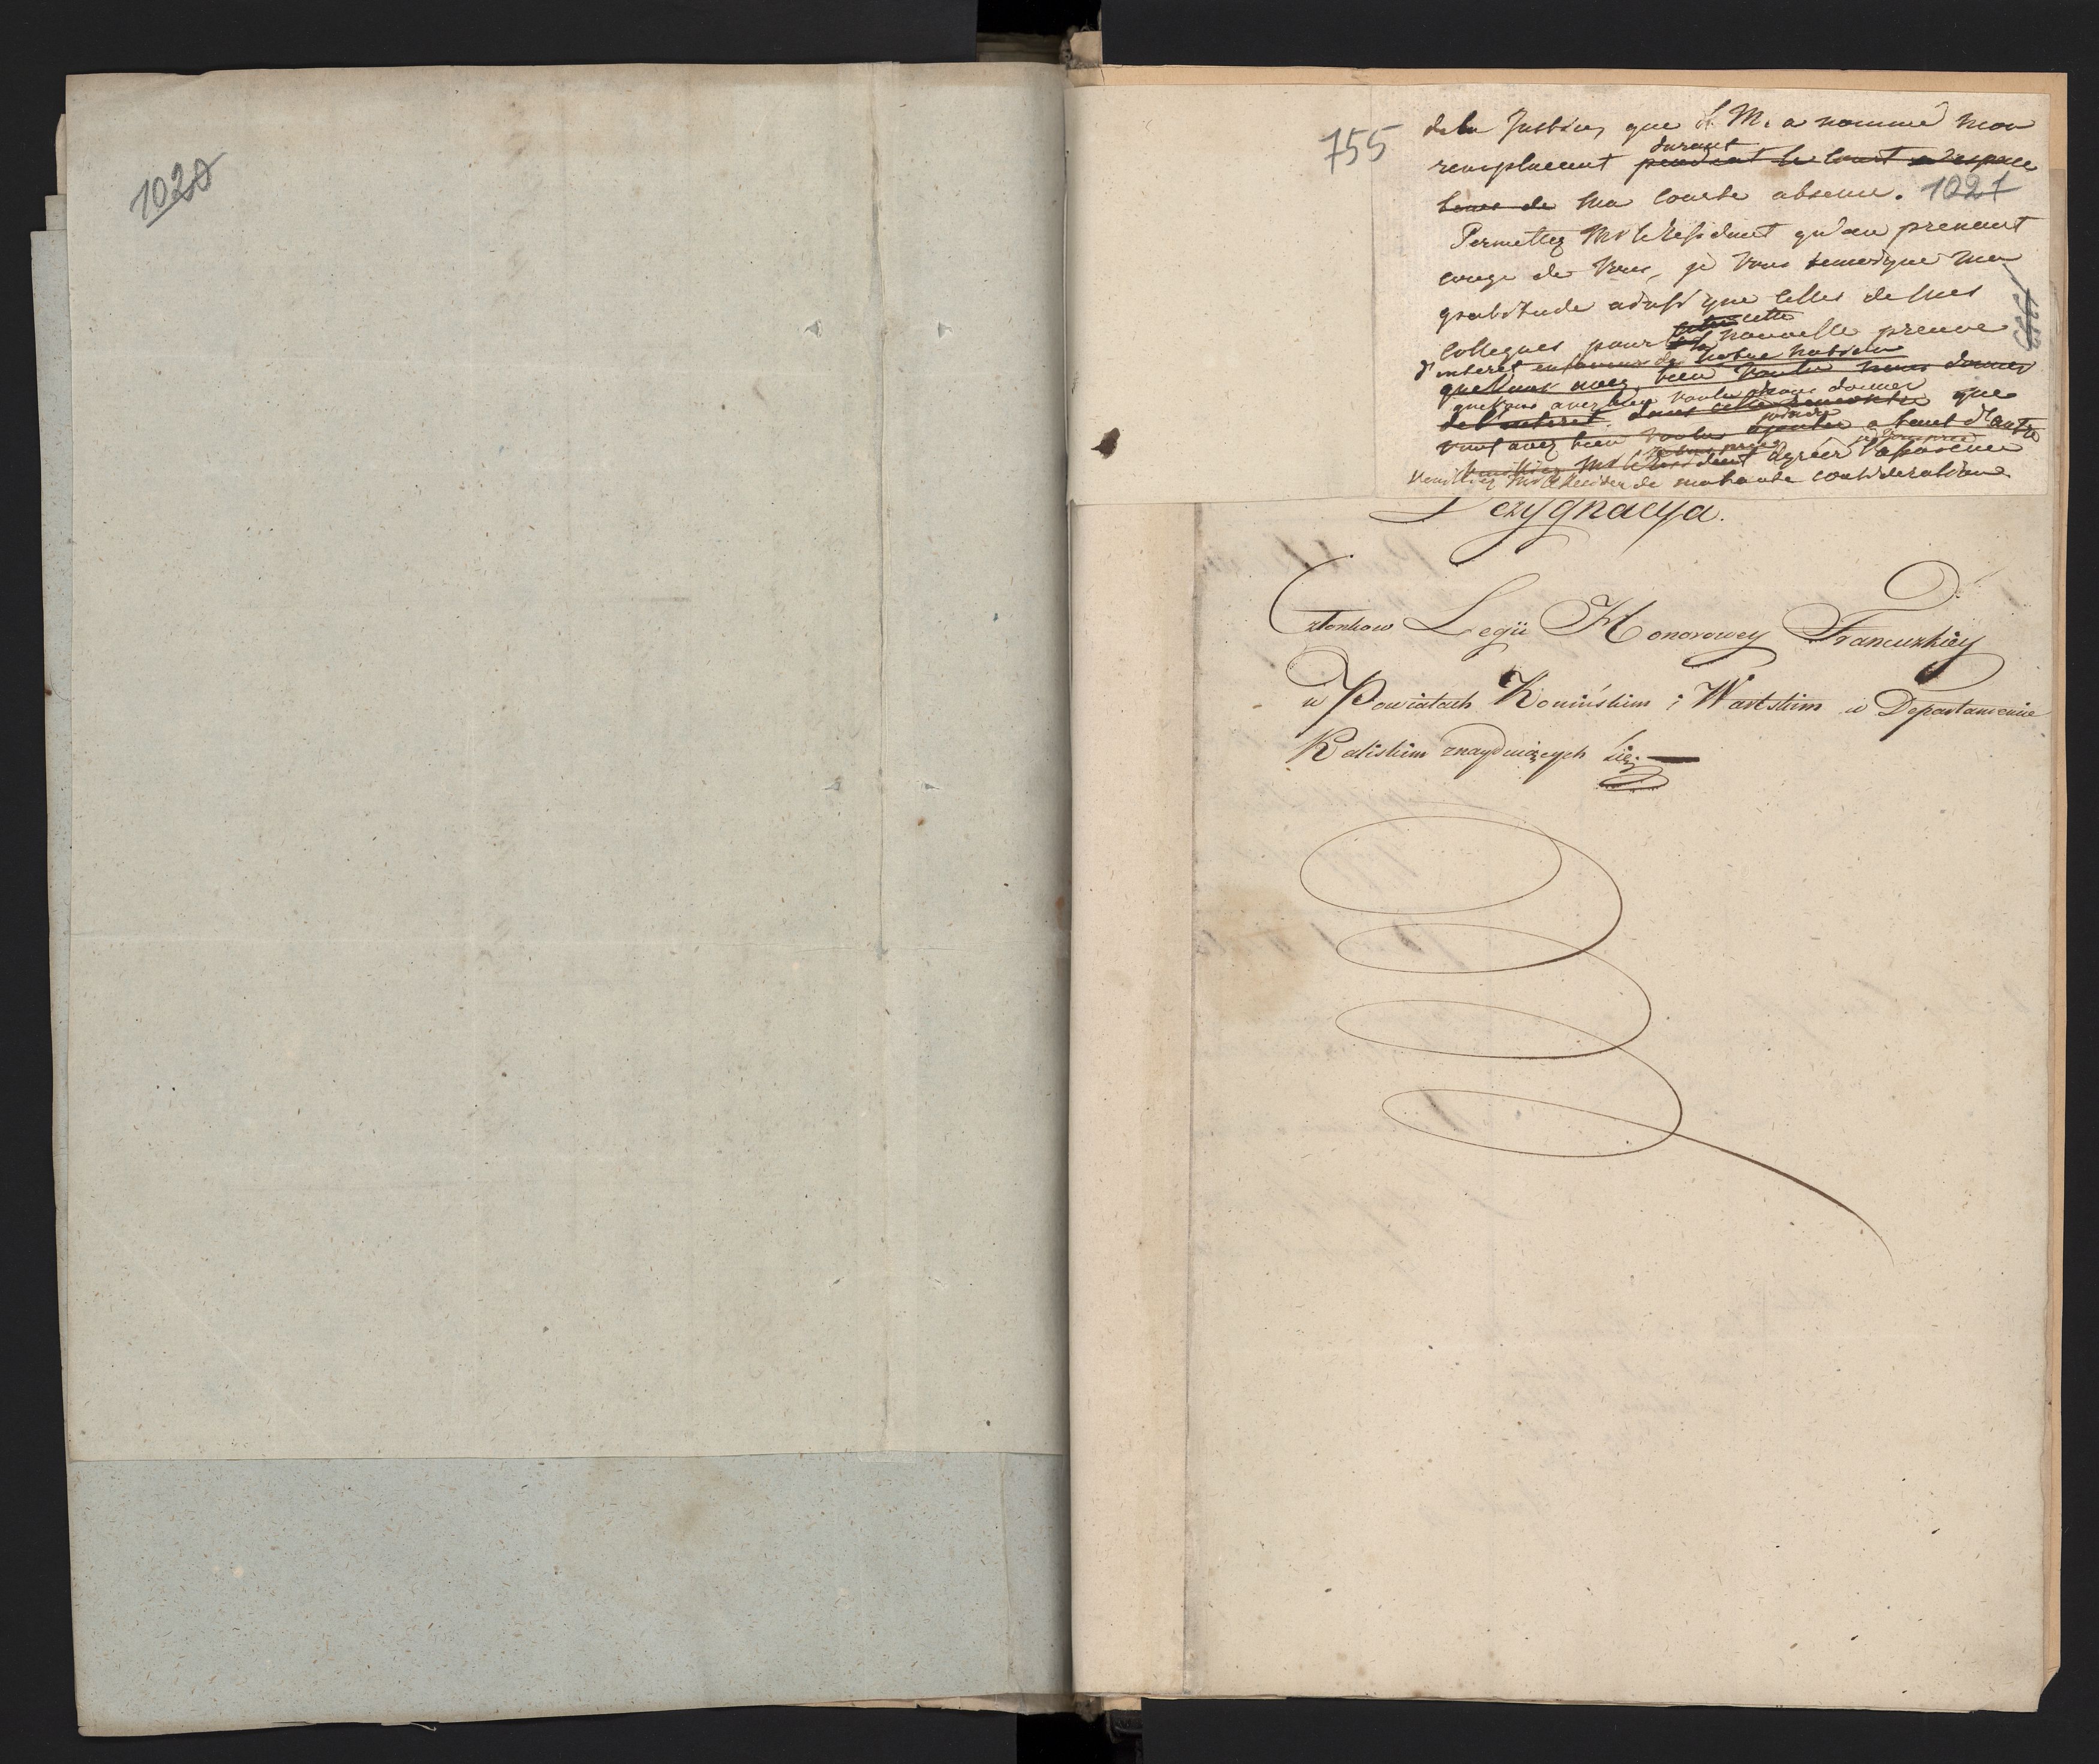 1020
755
de la Justice, que S. M. a nommé mon
durant
remplacent pendant le court espace
tems de ma courte absence. 1021
Permettez Mr le Président qu'en prenant
congé de Vous, je Vous temoigne ma
gratitude ainsi que celles de mes
cette
Collegues pour nouvelle preuve
d'interet en faveur de notre nation
que Vous avez bien voulu nous donner
que Vous avez bien voulu nous donner
de l'interet dans cette rencontre que
vous avez bien voulu ajouter a tant d'autre
je vous prie
Veuillez Mr le President agréer l'assurance
Veuillez Mr le de ma haute consideration
Dezygnacya.
Członkow Legii Honorowey Francuzkiey
w Powiatach Konińskim i Wartskim w Departamencie
Kaliskim znayduiących się. —